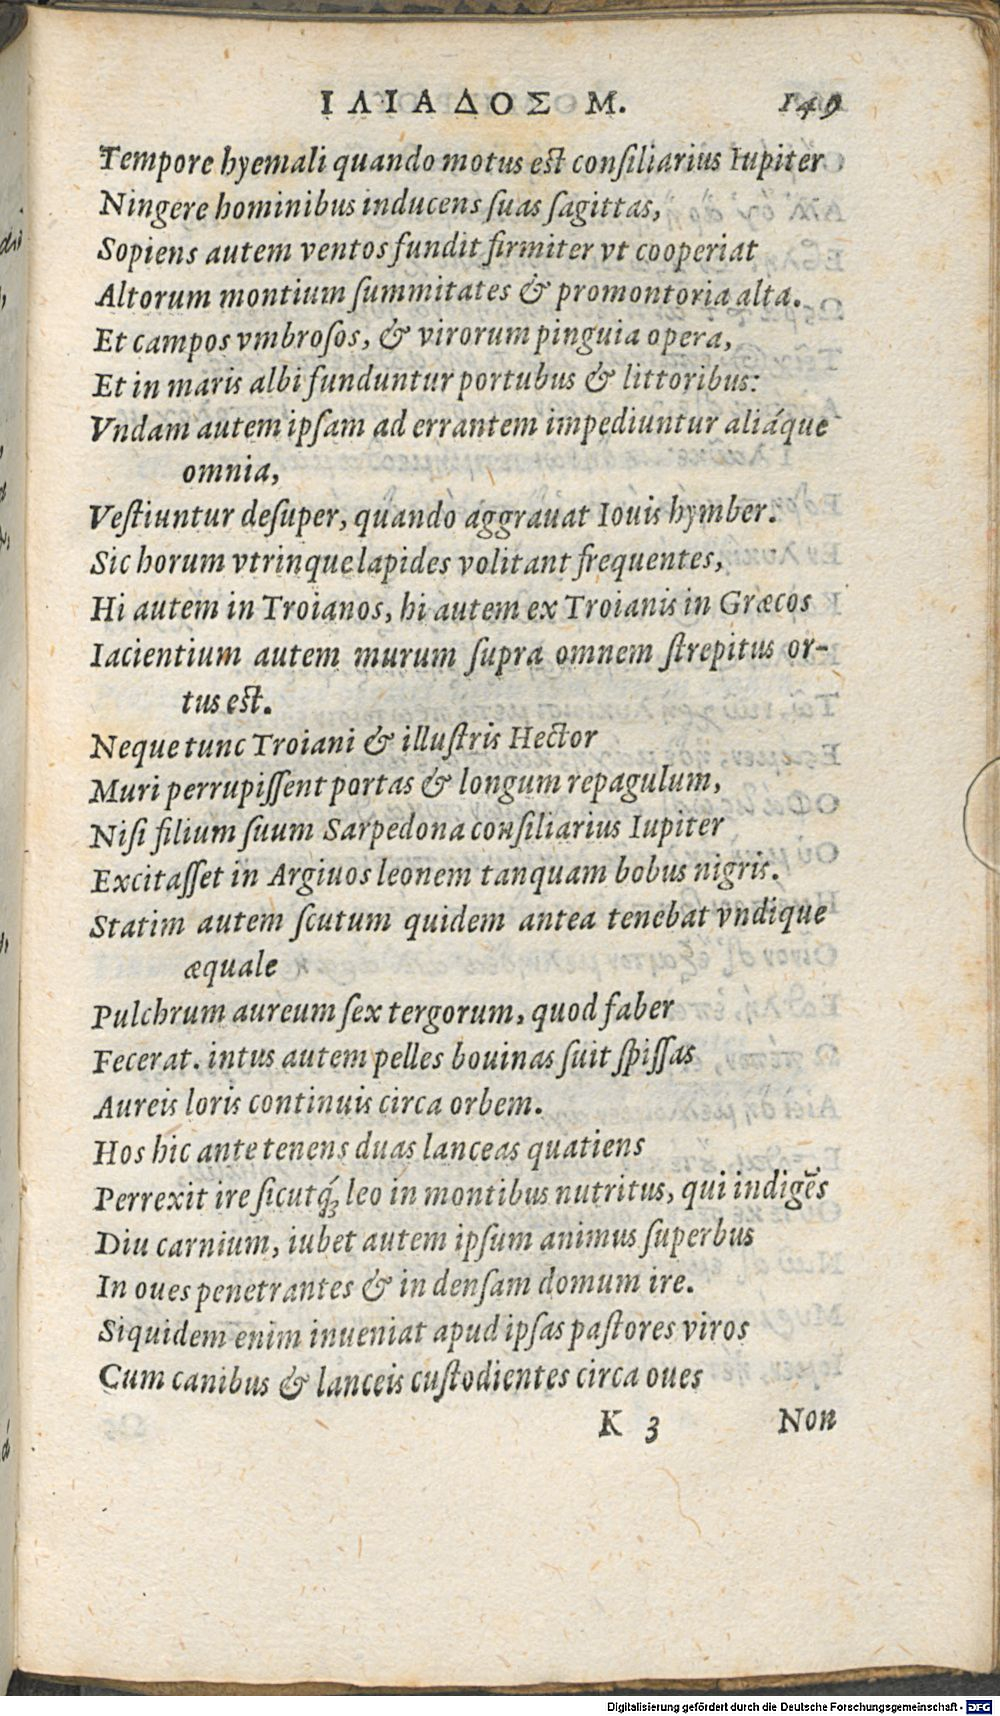 ΙΛΙΑΔΟΣ Μ. 149
Tempore hyemali quando motus est consiliarius Iupiter
Ningere hominibus inducens suas sagittas,
Sopiens autem ventos fundit firmiter vt cooperiat
Altorum montium summitates & promontoria alta.
Et campos vmbrosos, & virorum pinguia opera,
Et in maris albi funduntur portubus & littoribus:
Vndam autem ipsam ad errantem impediuntur aliáque
omnia,
Vestiuntur desuper, quando aggrauat Iouis hymber.
Sic horum vtrinque lapides volitant frequentes,
Hi autem in Troianos, hi autem ex Troianis in Græcos
Iacientium autem murum supra omnem strepitus or-
tus est.
Neque tunc Troiani & illustris Hector
Muri perrupissent portas & longum repagulum,
Nisi filium suum Sarpedona consiliarius Iupiter
Excitasset in Argiuos leonem tanquam bobus nigris.
Statim autem scutum quidem antea tenebat vndique
æquale
Pulchrum aureum sex tergorum, quod faber
Fecerat. intus autem pelles bouinas suit spissas
Aureis loris continuis circa orbem.
Hos hic ante tenens duas lanceas quatiens
Perrexit ire sicutq́; leo in montibus nutritus, qui indigẽs
Diu carnium, iubet autem ipsum animus superbus
In oues penetrantes & in densam domum ire.
Siquidem enim inueniat apud ipsas pastores viros
Cum canibus & lanceis custodientes circa oues
K 3 Non
Digitalisierung gefördert durch die Deutsche Forschungsgemeinschaft - DFG